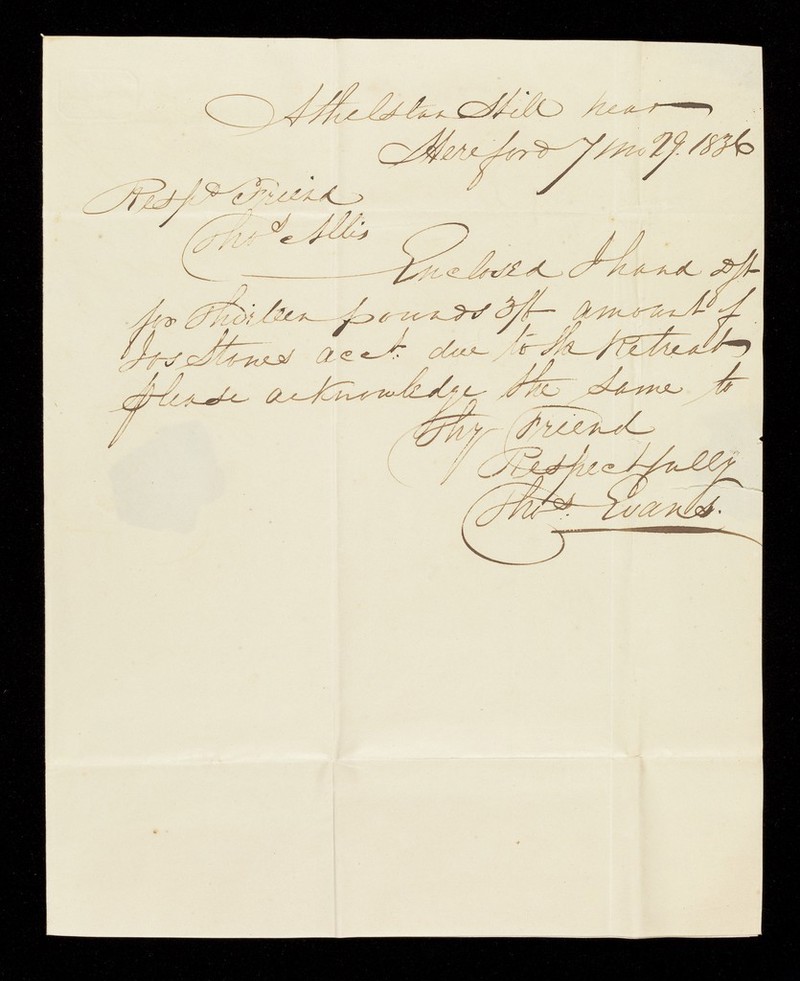 Athelstan Hill near
Hereford 7 mo 29. 1836
Respd Friend
Thos Allis
Enclosed I hand dft
for Thirteen pounds 3/- amount of
Jos Stones acct. due to the Retreat
please acknowledge the same to
Thy Friend
Respectfully
Thos. Evans.